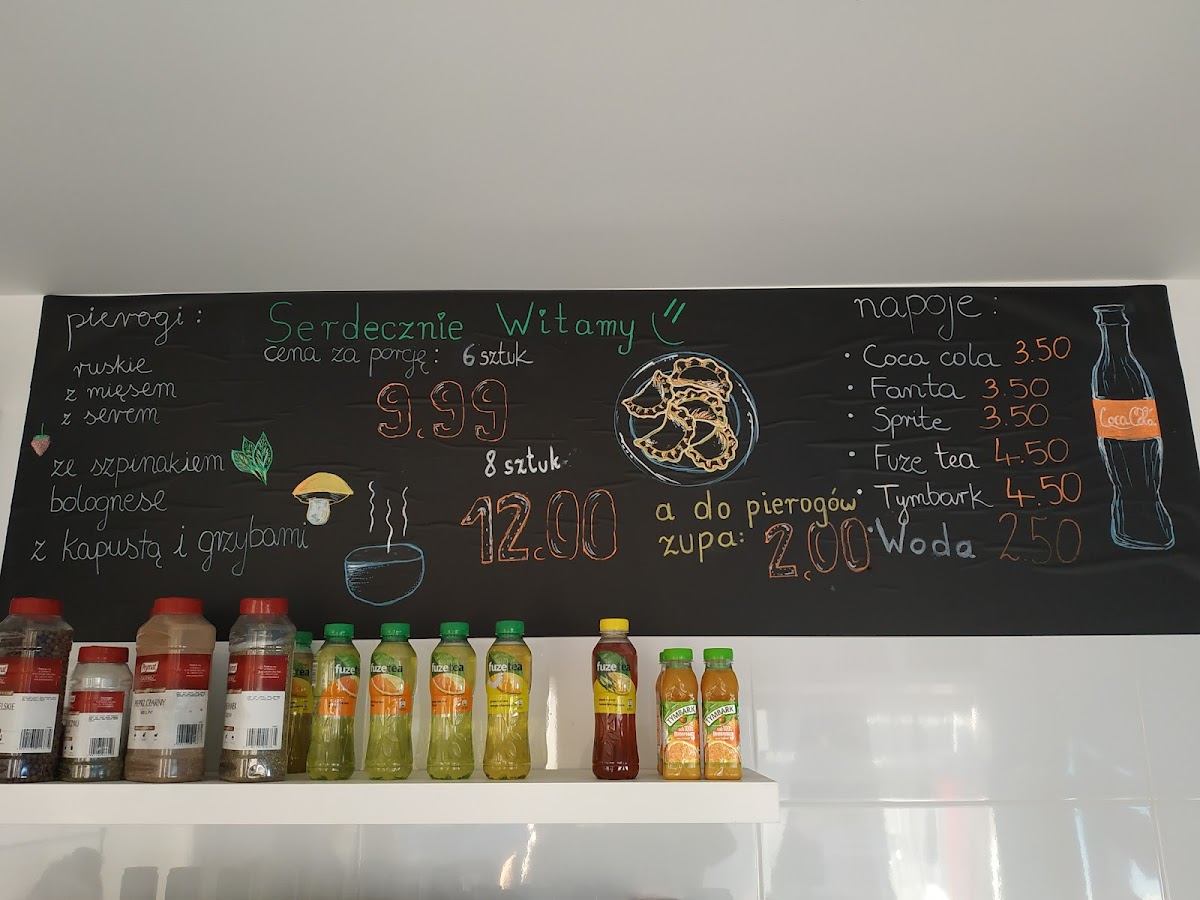 pierogi:
ruskie
z mięsem
z serem
ze szpinakiem
bolognese
z kapustą i grzybami
Serdecznie Witamy
cena za porcję: 6 sztuk
9.99
8 sztuk
12.00
a do pierogów
zupa: 2,00
napoje:
• Coca cola 3.50
• Fanta 3.50
• Sprite 3.50
• Fuze tea 4.50
• Tymbark 4.50
• Woda 2.50
Coca Cola
Prymat
PIEPRZ CZARNY
fuze tea
fuze tea
fuze tea
fuze tea
fuze tea
TYMBARK
TYMBARK